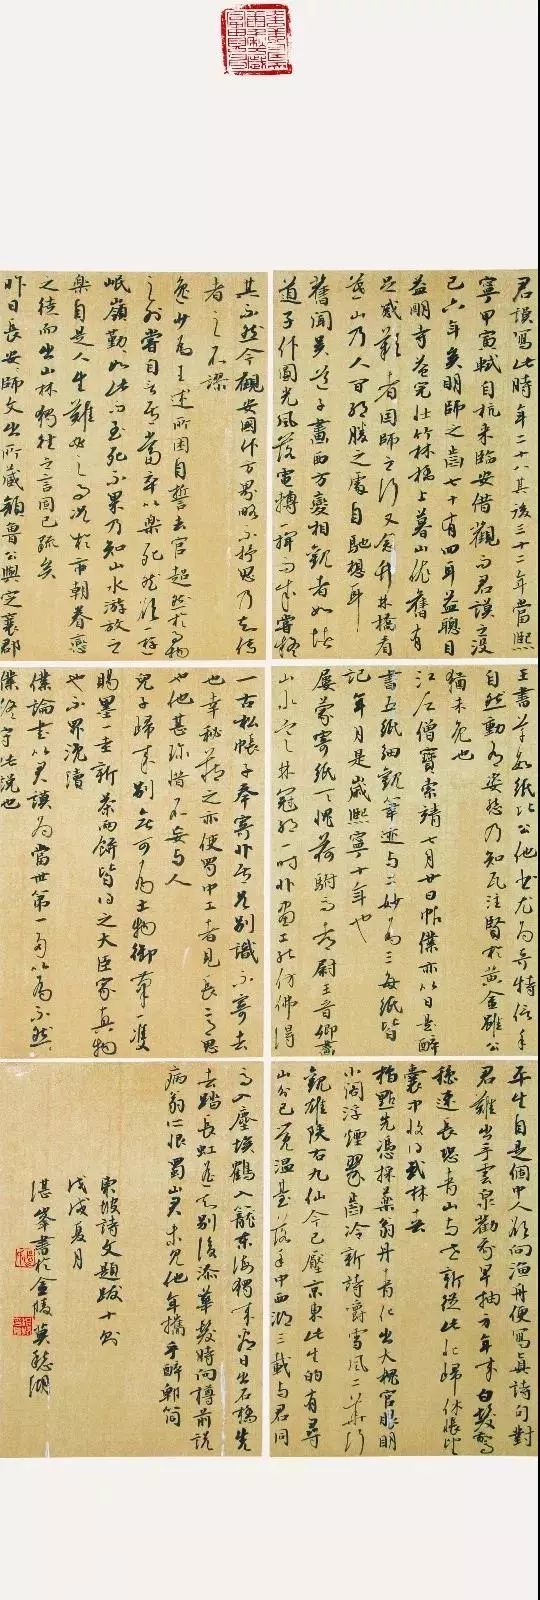 君謨寫此時年二十八其後三十二年當熙
寧甲寅軾自杭來臨安借觀而君謨之沒
已六年矣明師之齒七十有四耳益聰目
益明寺益完壯竹林橋上暮山依舊有
足感歎者因師之行又念竹林橋看
暮山乃人百絕勝之處自馳想耳
舊聞吳道子畫西方變相觀者如堵
道子作圓光風落電轉一揮而成嘗疑
其不然今觀安國作方界略不抒思乃知傳
者之不謬
逸少為王述所困自誓去官超然於事物
之外嘗自言吾當卒以樂死然欲一遊
岷嶺勤勤如此而至死不果乃知山水游放之
樂自是人生難必之事況於市朝眷戀
之徒而出山林獨往之言固已疏矣
昨日長安師文出所藏顏魯公與定襄郡
王書草數紙比公他書尤為奇特信手
自然動有姿態乃知瓦注賢於黃金雖公
猶未免也
江左僧寶索靖七月廿日帖僕亦以是日醉
書五紙細觀筆迹與二妙為三每紙皆
記年月是歲熙寧十年也
屢蒙寄紙一一愧荷駙馬都尉王晉卿畫
山水寒林冠絕一時非畫工能仿佛得
一古松帳子奉寄非吾兄別識不寄去
也幸秘藏之亦使蜀中工者見長意思
也他甚珍惜不妄與人
兒子歸來別無可為土物御筆一雙
賜墨一圭新茶兩餅皆得之大臣家真物
也不罪浼瀆
僕論書以君謨為當世第一多以為不然
僕終守此說也
平生自是個中人欲向漁舟便寫真詩句對
君難出手雲泉勸我早抽身年來白髮驚
穩速長恐青山與世新從此北歸休悵望
囊中收得武林春
指點先憑採藥翁丹青化出大槐宮眼明
小閣浮煙翠齒冷新詩嚼雪風二華行
觀雄陝右九仙今已壓京東此生的有尋
山分已覺溫臺落手中西湖三載與君同
馬入塵埃鶴入籠東海獨來看日出石橋先
去踏長虹遙知別後添華髮時向樽前說
病翁所恨蜀山君未見他年攜手醉郫筒
東坡詩文題跋十則
戊戌夏月
湛峯書於金陵莫愁湖